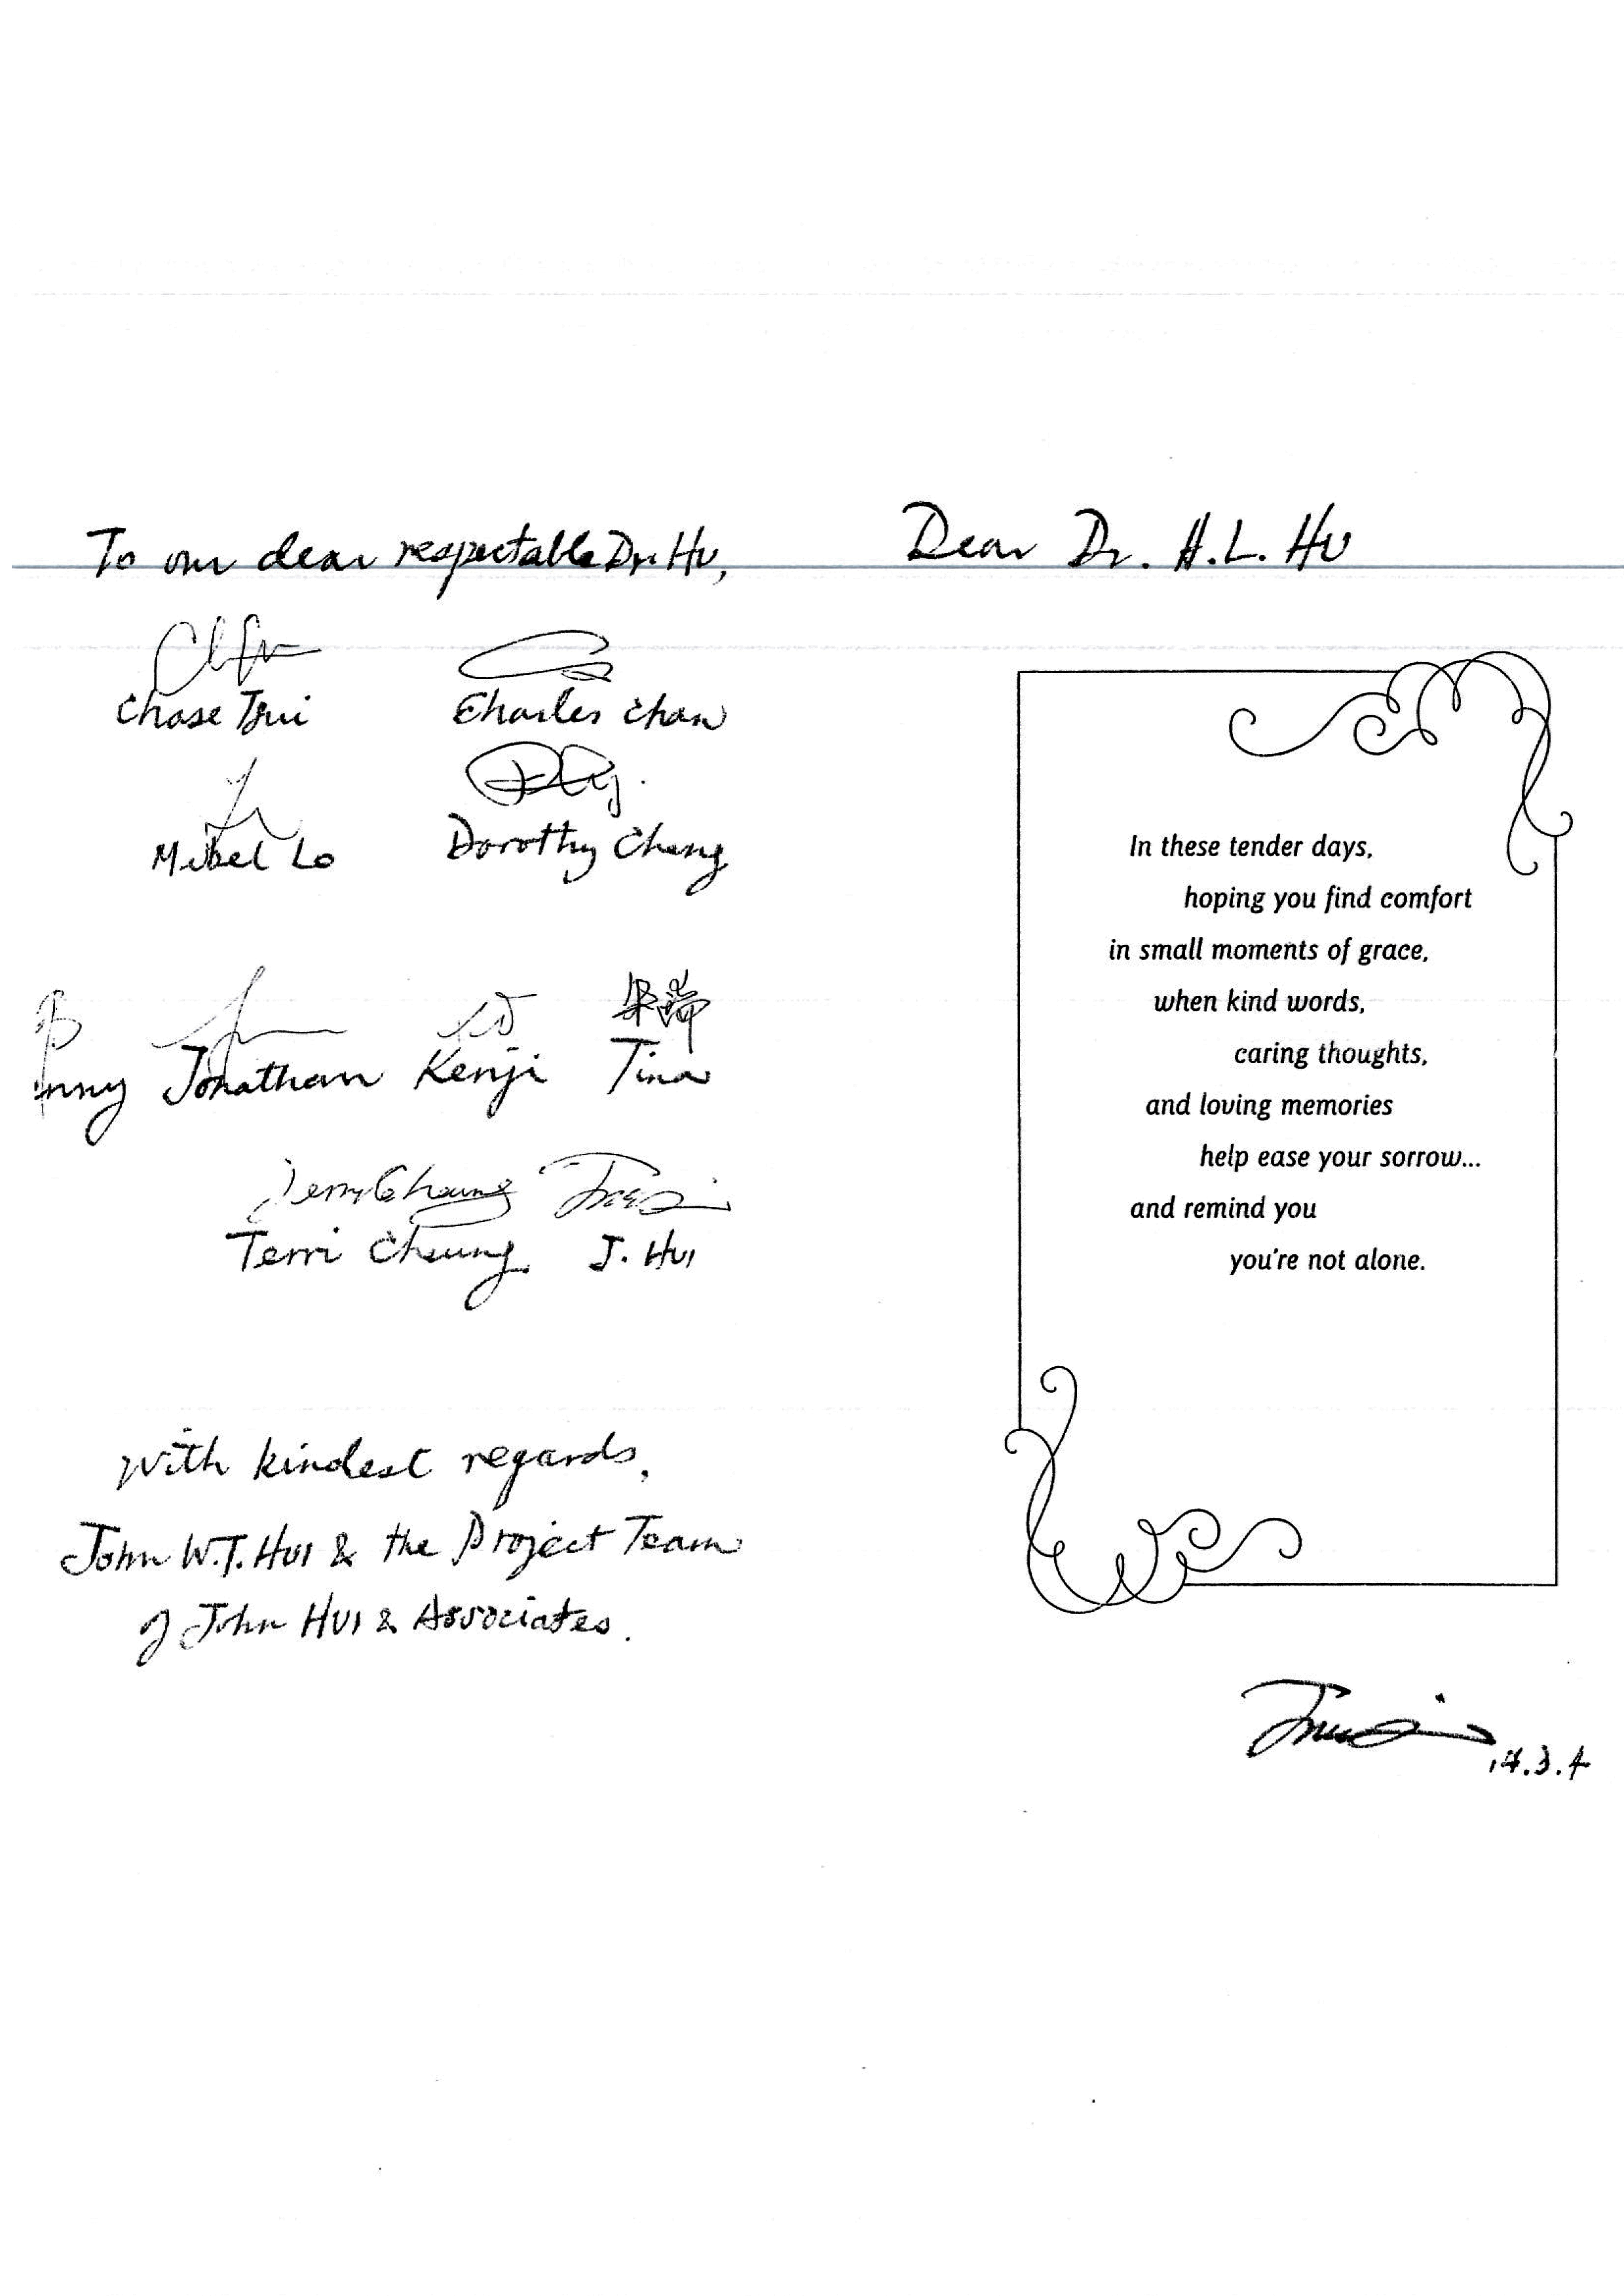 To our dear respectable Dr. Hu,
Chase Tsui
Charles Chan
Mabel Lo
Dorothy Cheng
Jonathan Kenji Tina
Terri Cheung
Terri Cheung J. Hui
With kindest regards,
John W.T. Hui & the Project Team
of John Hui & Associates.
Dear Dr. H.L. Hu
In these tender days,
hoping you find comfort
in small moments of grace,
when kind words,
caring thoughts,
and loving memories
help ease your sorrow...
and remind you
you're not alone.
14.3.4